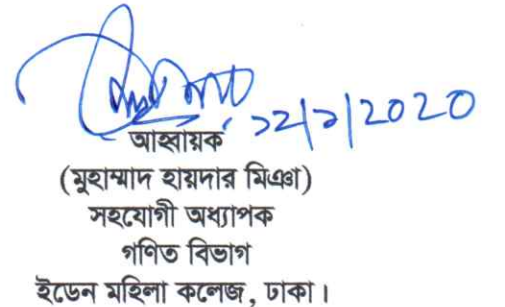 ১২/১/২০২০
আহ্বায়ক
(মুহাম্মাদ হায়দার মিঞা)
সহযোগী অধ্যাপক
গণিত বিভাগ
ইডেন মহিলা কলেজ, ঢাকা।